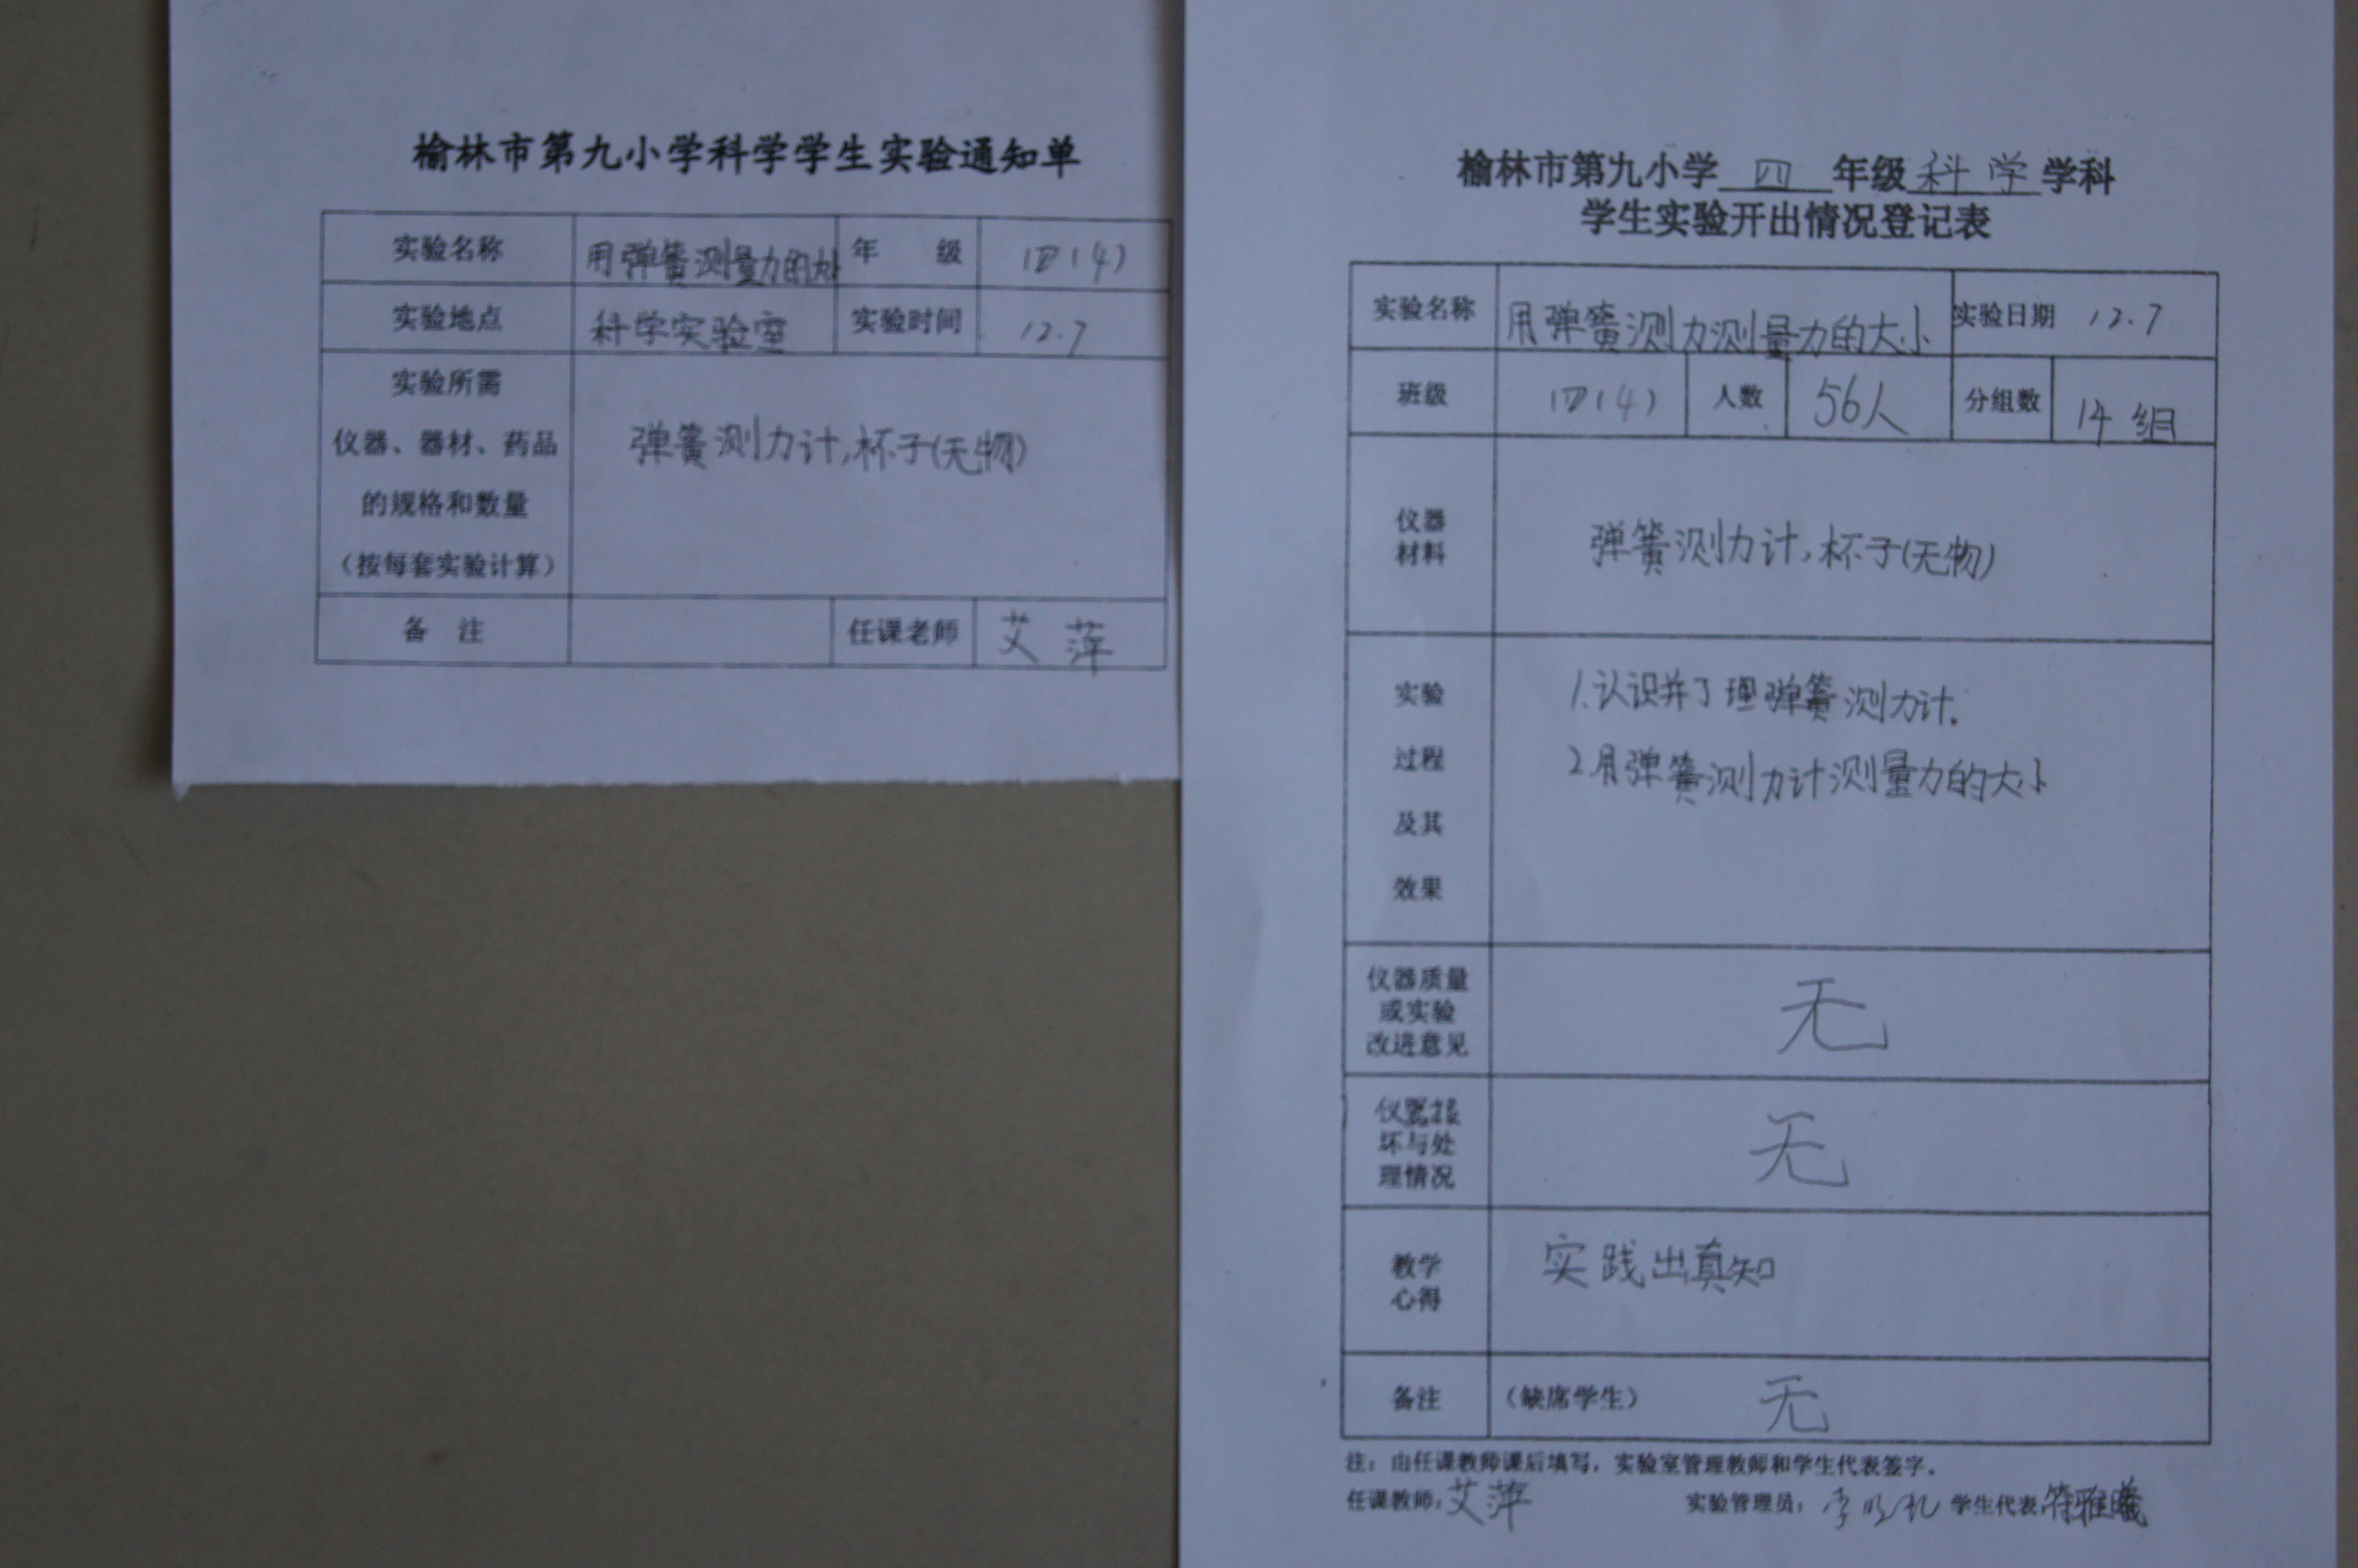 榆林市第九小学科学学生实验通知单
实验名称 用弹簧测量力的大小 年 级 四(4)
实验地点 科学实验室 实验时间 12.7
实验所需
仪器、器材、药品
的规格和数量
(按每套实验计算)
弹簧测力计,杯子(无物)
备 注 任课老师 艾萍
榆林市第九小学 四 年级 科学 学科
学生实验开出情况登记表
实验名称 用弹簧测力测量力的大小 实验日期 12.7
班级 四(4) 人数 56人 分组数 14组
仪器
材料
弹簧测力计,杯子(无物)
实验
过程
及其
效果
1.认识并了理弹簧测力计.
2.用弹簧测力计测量力的大小
仪器质量
或实验
改进意见
无
仪器损
坏与处
理情况
无
教学
心得
实践出真知
备注 (缺席学生) 无
注:由任课教师课后填写,实验室管理教师和学生代表签字.
任课教师:艾萍 实验管理员: 学生代表:符雅曦